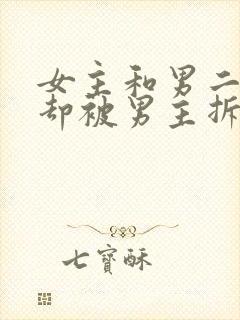 女主和男二
却被男主拆
七寶酥